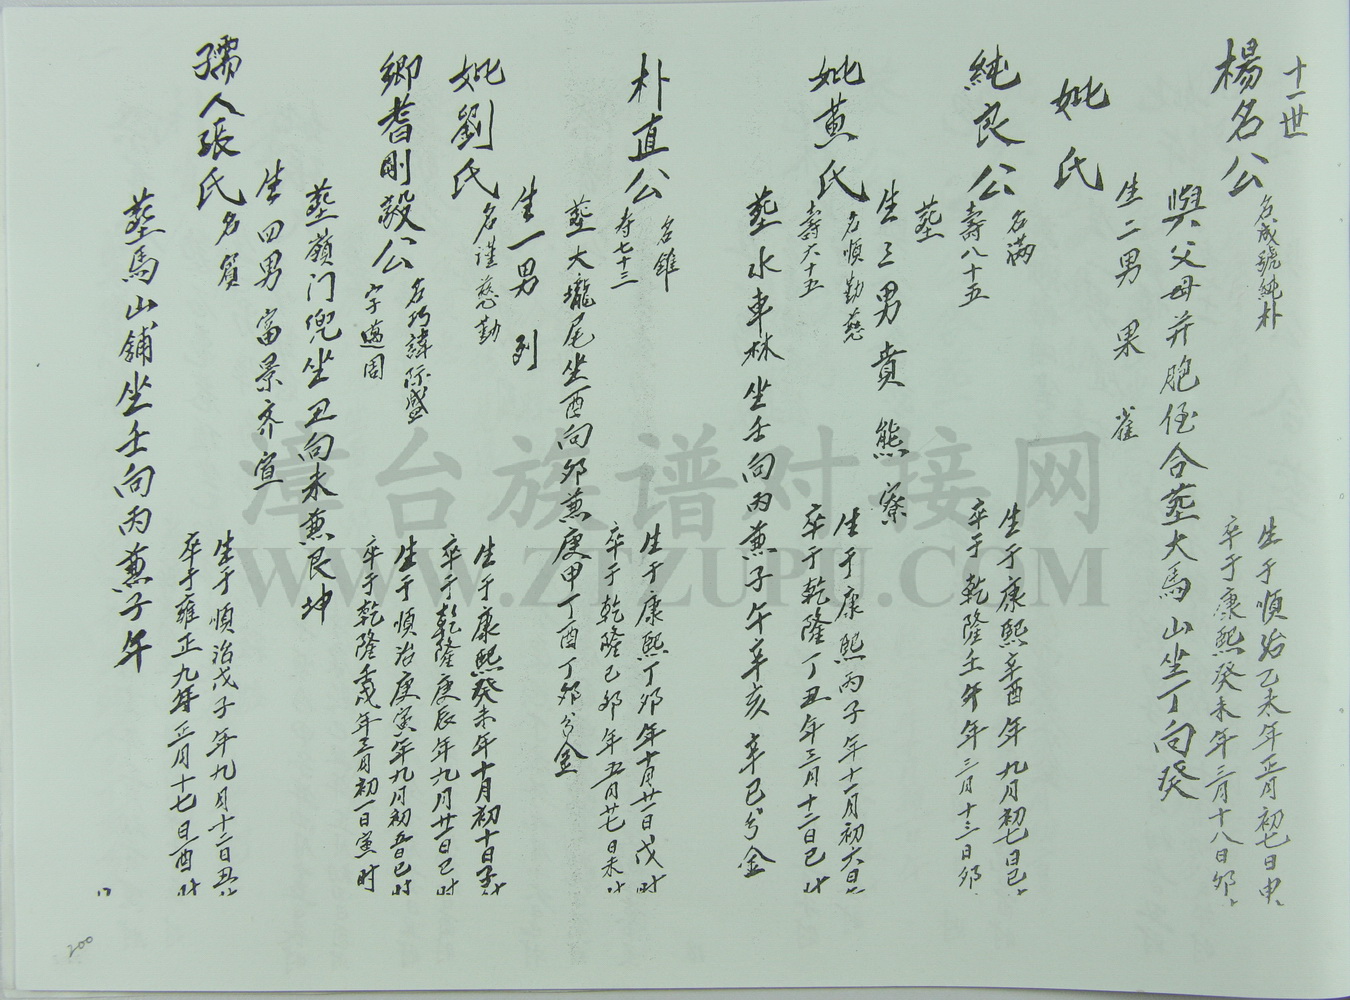 十一世
楊名公 名成號純朴 生于順治乙未年正月初七日申
卒于康熙癸未年三月十八日卯
與父母并胞侄合塟大馬山坐丁向癸
生二男 果 雀
妣氏
純良公 名滿 生于康熙辛酉年九月初七日巳
壽八十五 卒于乾隆壬午年三月十三日卯
塟
生三男 賁 熊 寮
妣黃氏 名順勤慈 生于康熙丙子年十一月初六日
壽六十五 卒于乾隆丁丑年三月十二日巳时
塟水車林坐壬向丙兼子午辛亥辛巳分金
朴直公 名雄 生于康熙丁卯年十月廿一日戊时
寿七十三 卒于乾隆己卯年五月廿七日未时
塟大壠尾坐酉向卯兼庚甲丁酉丁卯分金
生一男 列
妣劉氏 名謹慈勤 生于康熙癸未年十月初十日子时
卒于乾隆庚辰年六月廿一日巳时
鄉耆剛毅公 名巧諱际盛 生于順治庚寅年九月初五日巳时
字邁周 卒于乾隆壬戌年三月初一日寅时
塟嶺门兜坐丑向未兼艮坤
生四男 富景齐宣
孺人張氏 名質 生于順治戊子年九月十二日丑
卒于雍正九年正月十七日酉时
塟馬山舖坐壬向丙兼子午
200
漳台族谱对接网
WWW.ZTZUPU.COM